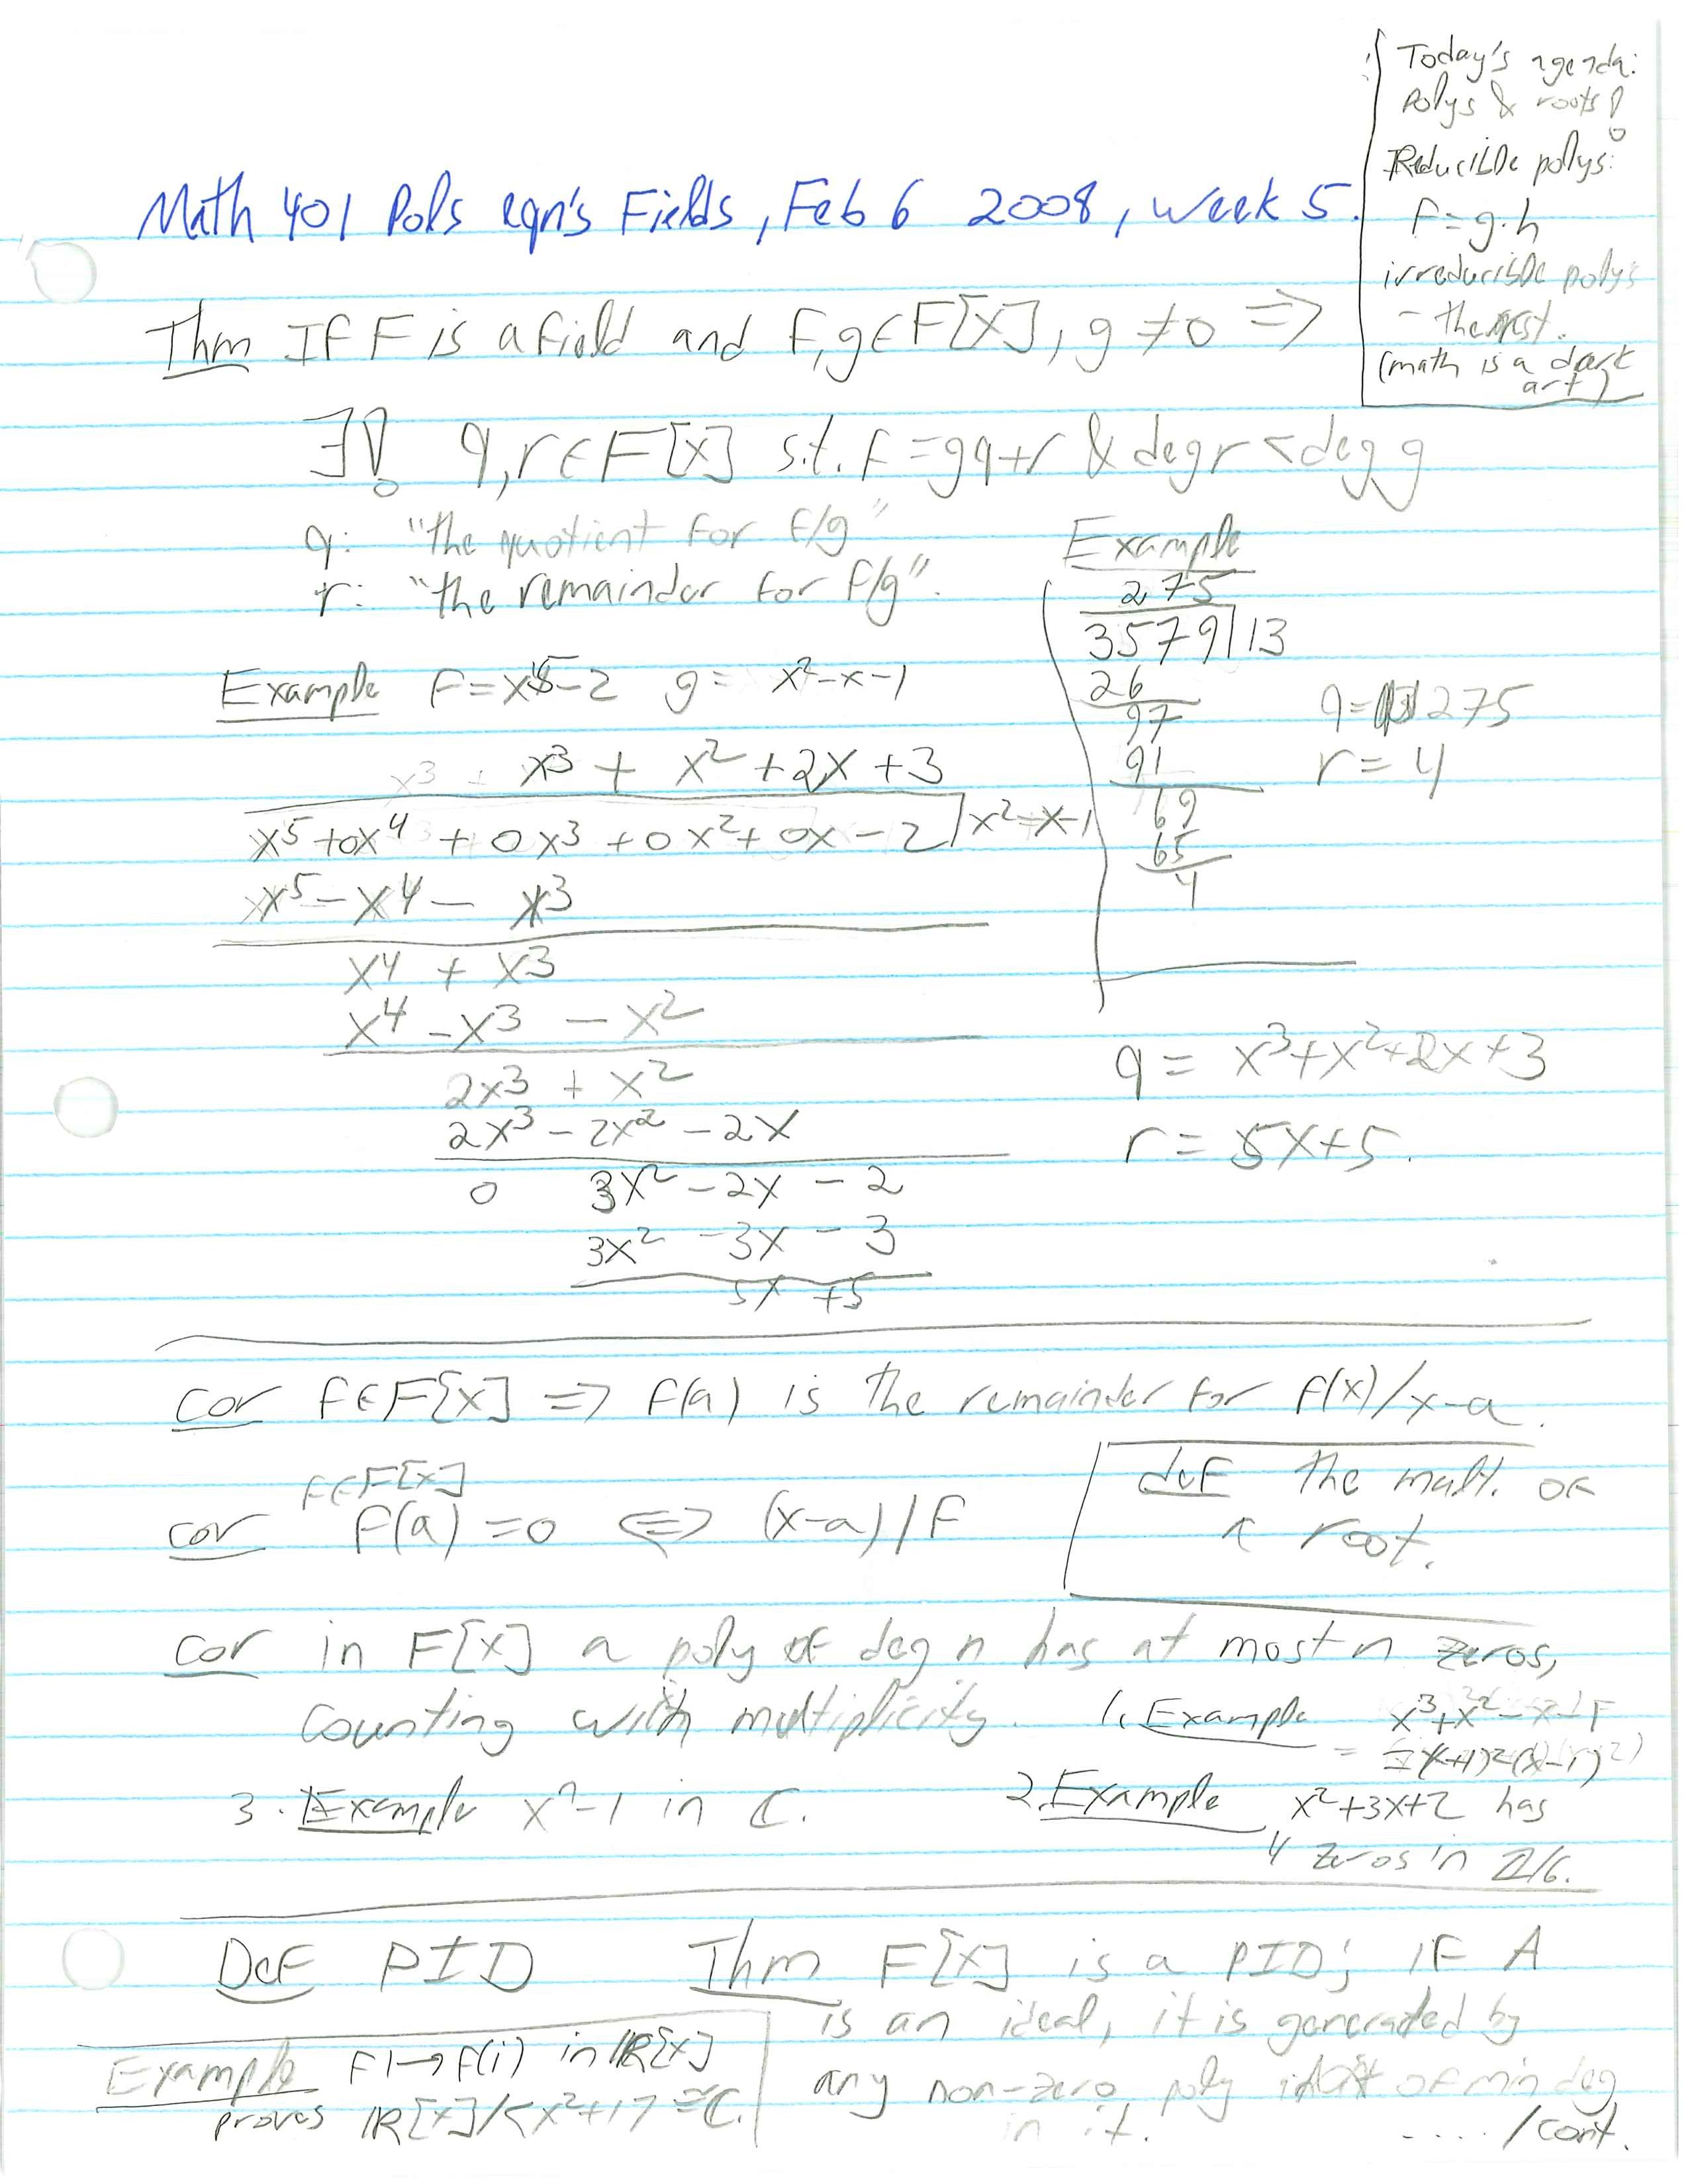 Today's agenda:
Polys & roots!
Reducible polys:
f=g·h
irreducible polys
- the rest.
(math is a dark
art)
Math 401 Pols eqn's Fields, Feb 6 2008, week 5.
Thm If F is a field and f,g∈F[x], g≠0 ⇒
∃! q,r∈F[x] s.t. f=gq+r & deg r<deg g
q: "the quotient for f/g"
r: "the remainder for f/g".
Example
275
3579|13
26
97
91
69
65
4
q=275
r=4
Example f=x⁵-2 g= x²-x-1
x³ + x²+2x+3
x⁵+0x⁴+0x³+0x²+0x-2|x²-x-1
x⁵-x⁴-x³
x⁴+x³
x⁴-x³-x²
2x³+x²
2x³-2x²-2x
0 3x²-2x-2
3x²-3x-3
5x+5
q= x³+x²+2x+3
r= 5x+5.
cor f∈F[x] ⇒ f(a) is the remainder for f(x)/x-a.
f∈F[x]
cor f(a)=0 ⇔ (x-a)|f
def the mult. of
a root.
cor in F[x] a poly of deg n has at most n zeros,
counting with multiplicity.
1. Example x³+x²-x-1
=(x+1)²(x-1)
2. Example x²+3x+2 has
4 zeros in Z/6.
3. Example xⁿ-1 in C.
Def PID Thm F[x] is a PID; if A
is an ideal, it is generated by
any non-zero poly of min deg
in it. .... /cont.
Example f↦f(i) in R[x]
proves R[x]/<x²+1>≅C.